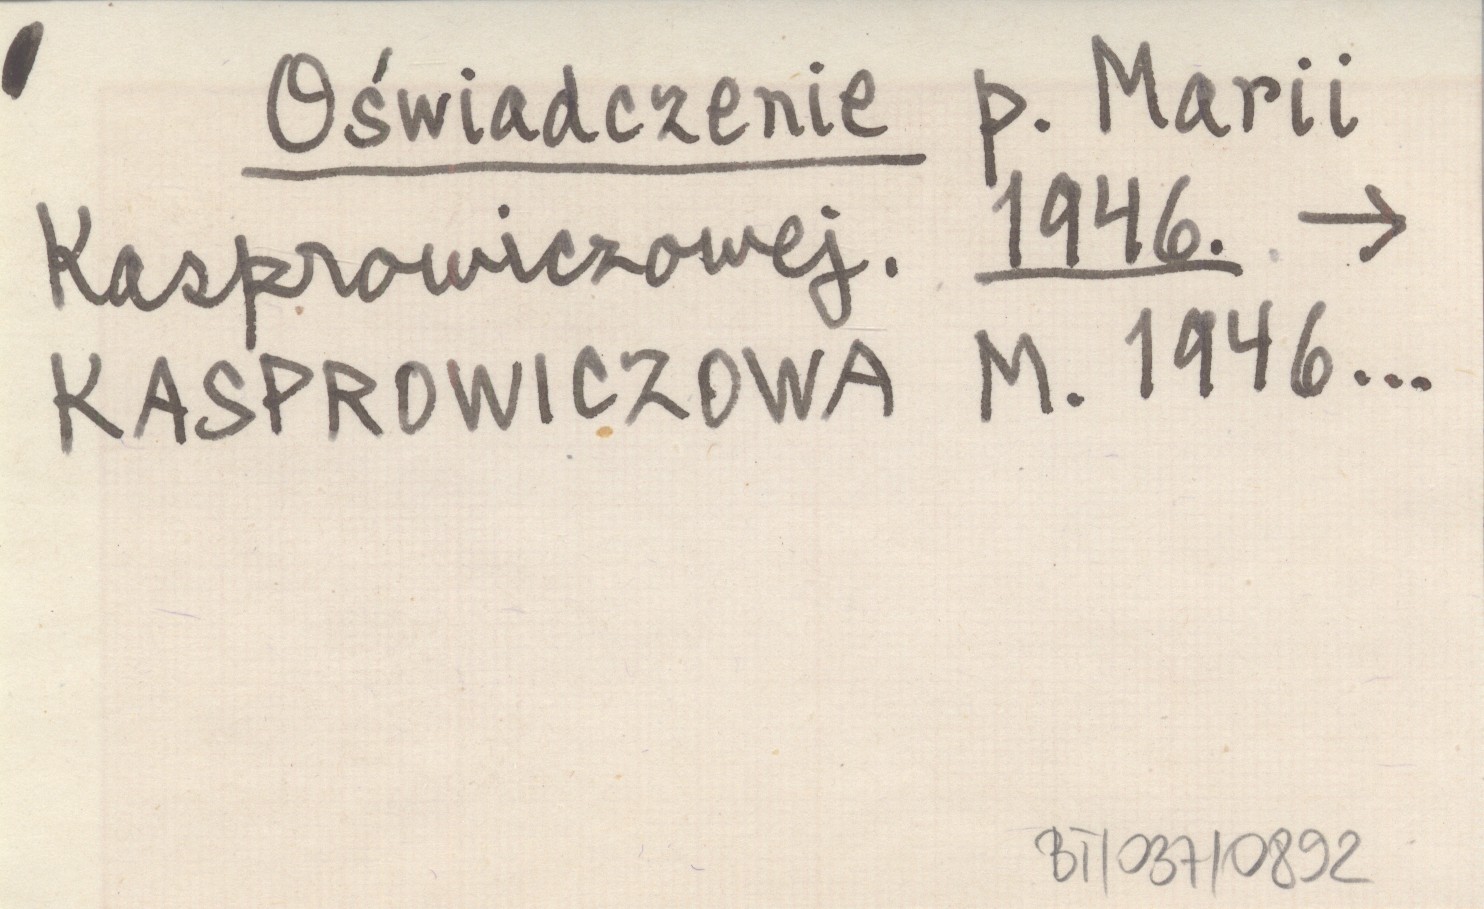 Oświadczenie p. Marii
Kasprowiczowej. 1946. →
KASPROWICZOWA M. 1946...
BT/037/0892